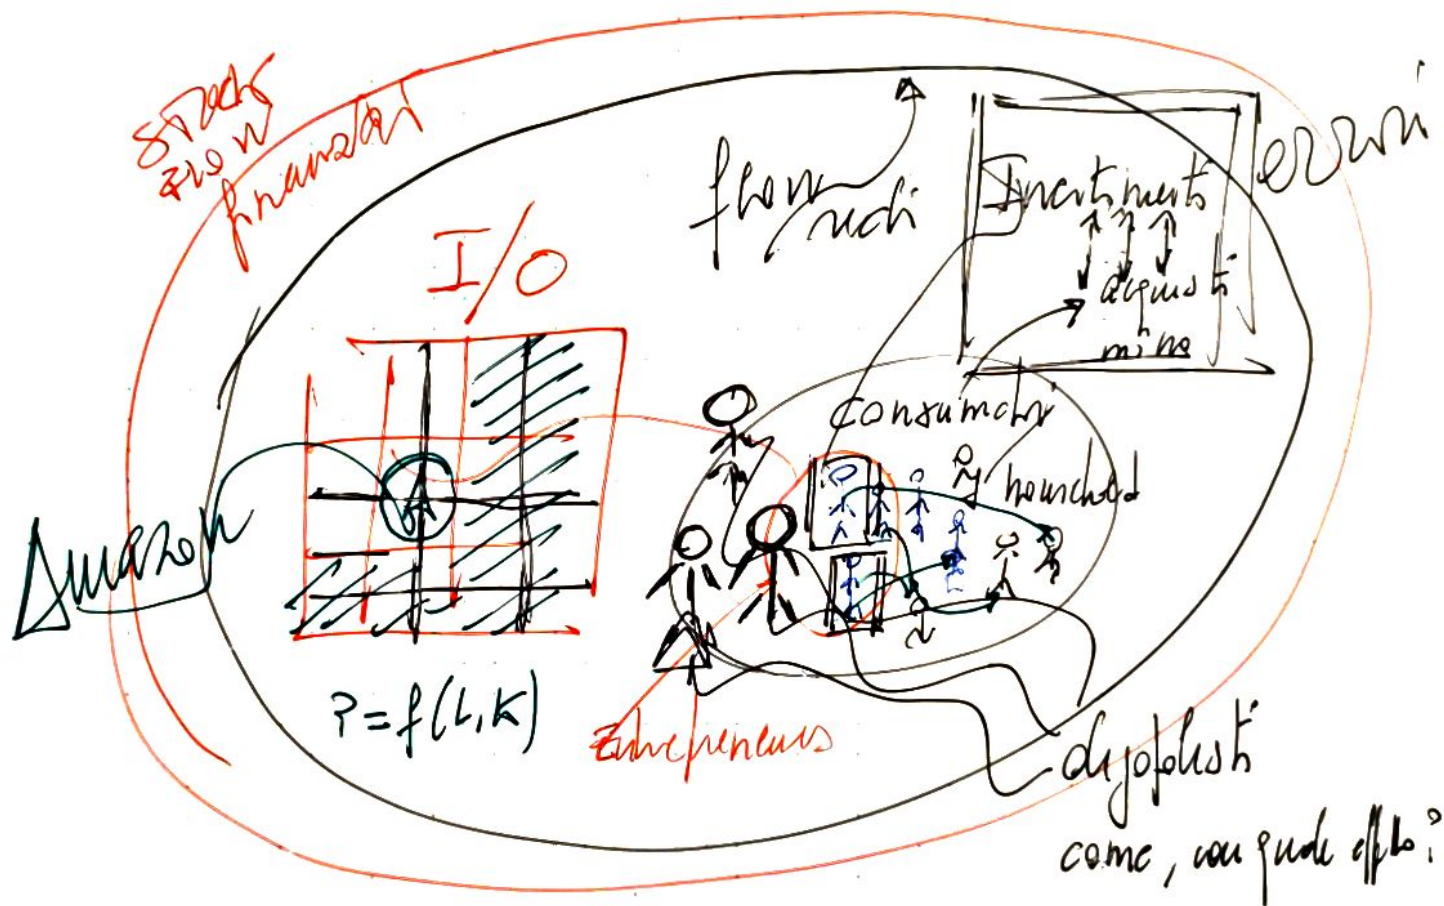 Stock
flow
finanziari
flow
reali
I/O
Investimenti
acquisti
errori
consumatori
household
Amazon
P=f(L,K)
Entrepreneurs
come, con quale effetto?